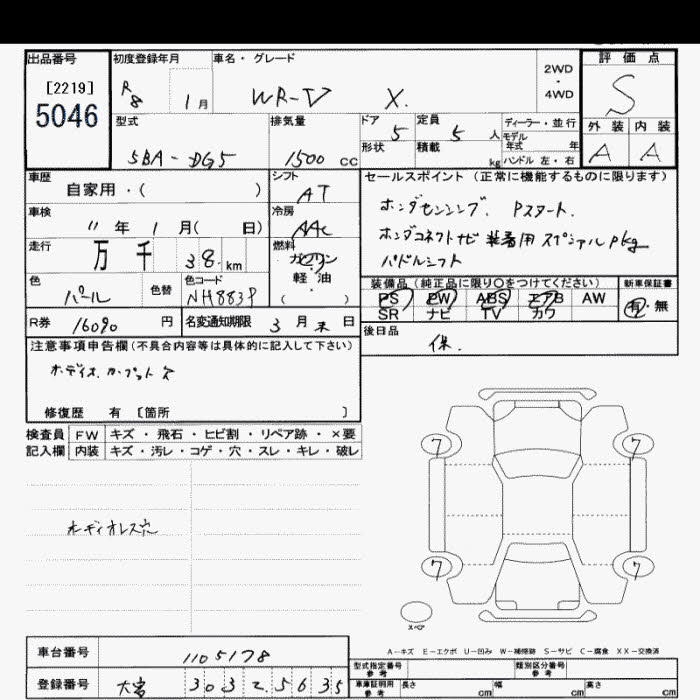 出品番号 初度登録年月 車名・グレード 2WD・4WD 評価点
[2219] R8 1月 WR-V X. S
5046
型式 排気量 ドア 定員 ディーラー・並行 外装 内装
5BA-DG5 1500cc 5 5人 モデル年式 年 A A
形状 積載 kg ハンドル 左・右
車歴 シフト セールスポイント (正常に機能するものに限ります)
自家用・( ) AT
ホンダセンシング. Pスタート.
車検 冷房
11年 1月( 日) AAC ホンダコネクトナビ装着用スペシャルpkg
走行 燃料
万 千 38.km ガソリン・軽油( ) パドルシフト
色 色替 色コード 装備品 (純正品に限り○をつけてください) 新車保証書
パール NH883P PS PW ABS エアB AW 有・無
SR ナビ TV カワ
R券 16090円 名変通知期限 3月末日 後日品
保.
注意事項申告欄(不具合内容等は具体的に記入して下さい)
修復歴 有 [箇所 ]
検査員 FW キズ・飛石・ヒビ割・リペア跡・×要
記入欄 内装 キズ・汚レ・コゲ・穴・スレ・キレ・破レ
オーディオレス穴
7 7
7 7
スペア
A-キズ E-エクボ U-凹み W-補修跡 S-サビ C-腐食 XX-交換済
車台番号 1105178
型式指定番号 参考 類別区分番号 参考
登録番号 大宮 303 2 5635
車庫証明用 参考 長さ cm 幅 cm 高さ cm